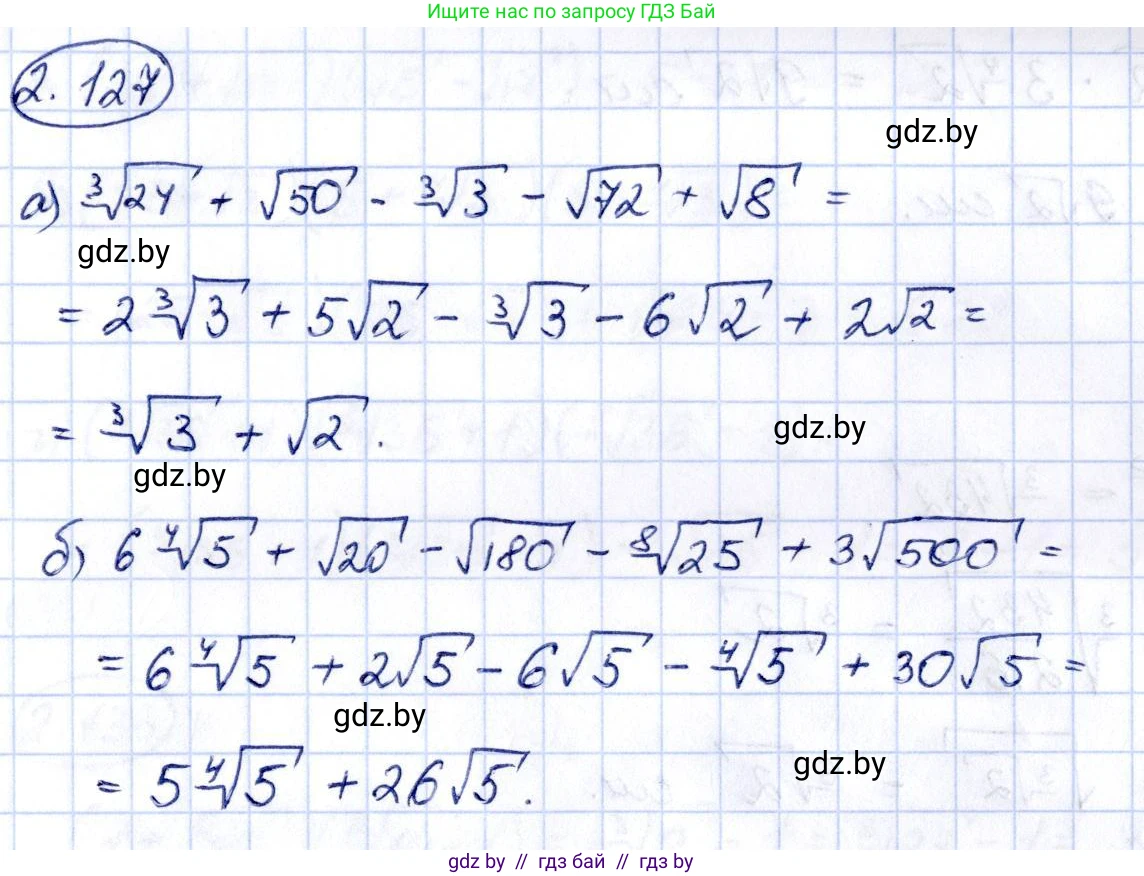 Ищите нас по запросу ГДЗ Бай
2.127
gdz.by
а) ∛24 + √50 - ∛3 - √72 + √8 =
gdz.by
= 2∛3 + 5√2 - ∛3 - 6√2 + 2√2 =
= ∛3 + √2.
gdz.by
gdz.by
б) 6∜5 + √20 - √180 - ⁸√25 + 3√500 =
= 6∜5 + 2√5 - 6√5 - ∜5 + 30√5 =
gdz.by
= 5∜5 + 26√5.
gdz.by
gdz by // гдз бай // гдз by